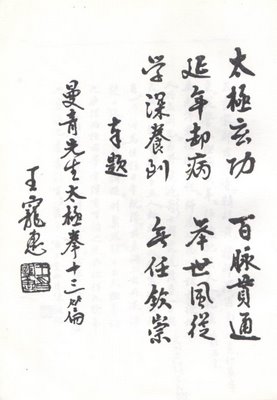 太極玄功 百脈貫通
延年却病 举世風從
学深養到 無任欽崇
奉題
曼青先生太極拳十三篇
王寵惠